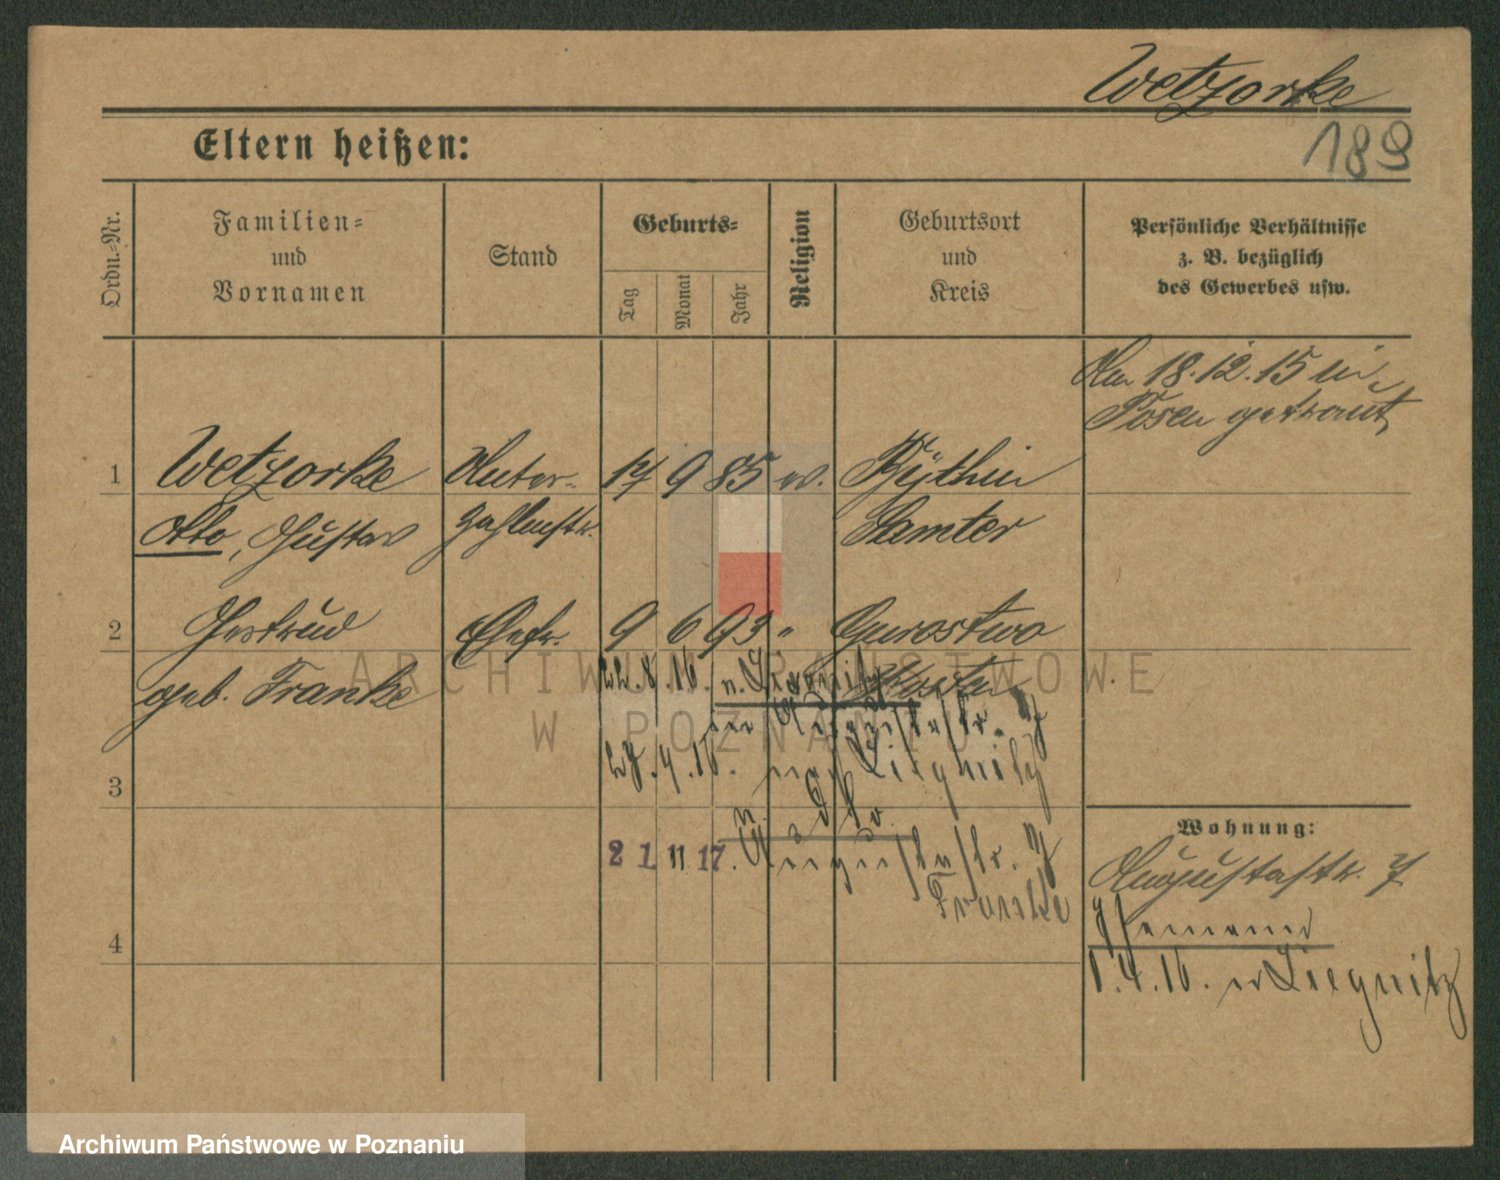 Wetzorke
189
Eltern heißen:
Ordn.-Nr.
Familien-
und
Vornamen
Stand
Geburts-
Tag
Monat
Jahr
Religion
Geburtsort
und
Kreis
Persönliche Verhältnisse
z. B. bezüglich
des Gewerbes usw.
18.12.15 in
Posen getraut
1 Wetzorke Unter- 17 9 85 ev. Pythin
Otto, Gustav zahlmstr. Samter
2 Gertrud Ehefr. 9 6 93 " Gurostwo
geb. Franke
22.8.16.
Augustastr. 7
27.4.16. nach Liegnitz
3
21 11 17. Augustastr. 7
Franke
4
Wohnung:
Augustastr. 7
1.4.16. n Liegnitz
ARCHIWUM PAŃSTWOWE
W POZNANIU
Archiwum Państwowe w Poznaniu